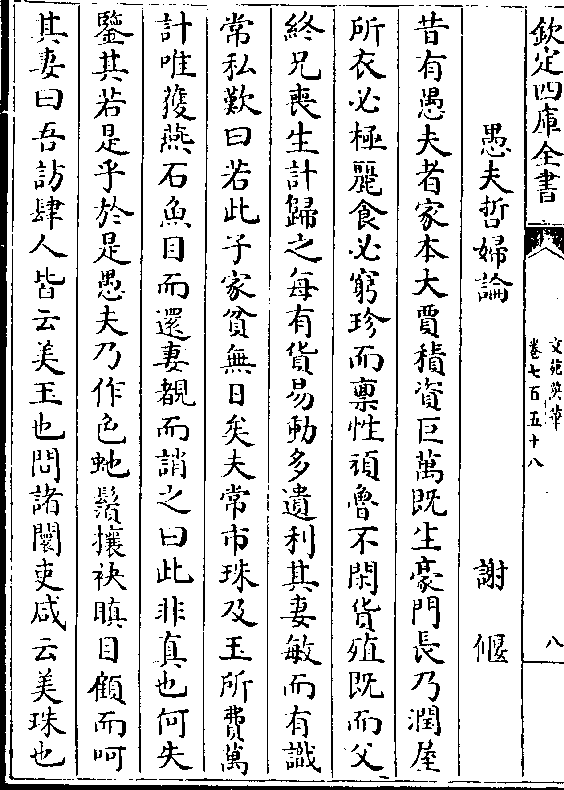 欽定四庫全書
文苑英華
卷七百五十八
八
愚夫哲婦論 謝偃
昔有愚夫者家本大賈積資巨萬既生豪門長乃潤屋
所衣必極麗食必窮珍而禀性頑魯不閑貨殖既而父
終兄喪生計歸之每有貨易動多遺利其妻敏而有識
常私歎曰若此子家貧無日矣夫常市珠及玉所費萬
計唯獲燕石魚目而還妻覩而誚之曰此非真也何失
鑒其若是乎於是愚夫乃作色虵鬚攘袂瞋目顧而呵
其妻曰吾訪肆人皆云美玉也問諸闤吏咸云美珠也